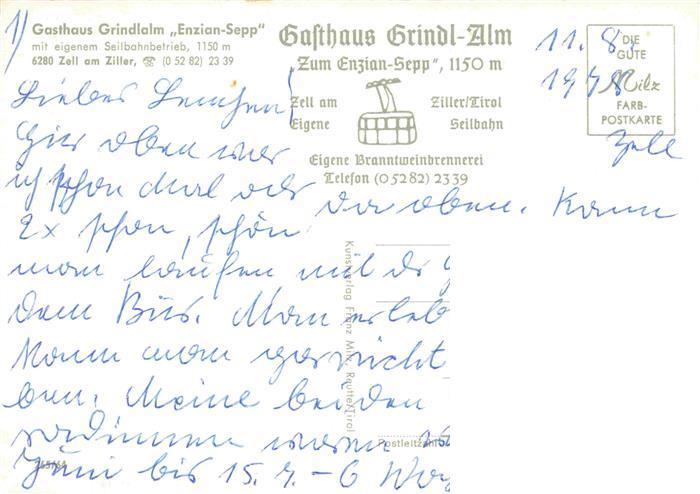 1)
Gasthaus Grindlalm „Enzian-Sepp"
mit eigenem Seilbahnbetrieb, 1150 m
6280 Zell am Ziller, ☎ (0 52 82) 23 39
Gasthaus Grindl-Alm
„Zum Enzian-Sepp", 1150 m
Zell am Ziller/Tirol
Eigene Seilbahn
Eigene Branntweinbrennerei
Telefon (0 52 82) 23 39
DIE
GUTE
Milz
FARB-
POSTKARTE
11. 8.
1978
Zell
Hier oben war
ich schon mal oder
2x schon, schön da oben. Kann
man laufen mit d
dem Bus. Man erleb
kann man gar nicht
ben. Meine beiden
waren
Juni bis 15. 7. – 6 Wo
Kunstverlag Franz Milz Reutte/Tirol
Postleitzahl